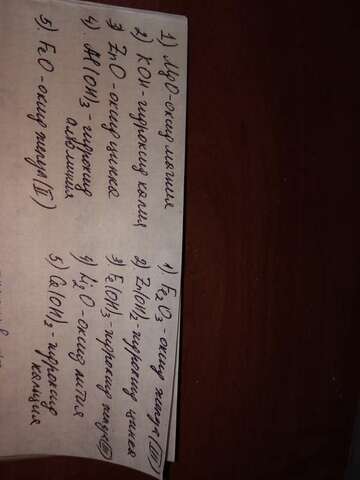 1) MgO-оксид магния
2) KOH-гидроксид калия
3) ZnO-оксид цинка
4) Al(OH)3-гидроксид
алюминия
5) FeO-оксид железа(II)
1) Fe2O3-оксид железа(III)
2) Zn(OH)2-гидроксид цинка
3) Fe(OH)3-гидроксид железа(III)
4) Li2O-оксид лития
5) Ca(OH)2-гидроксид
кальция